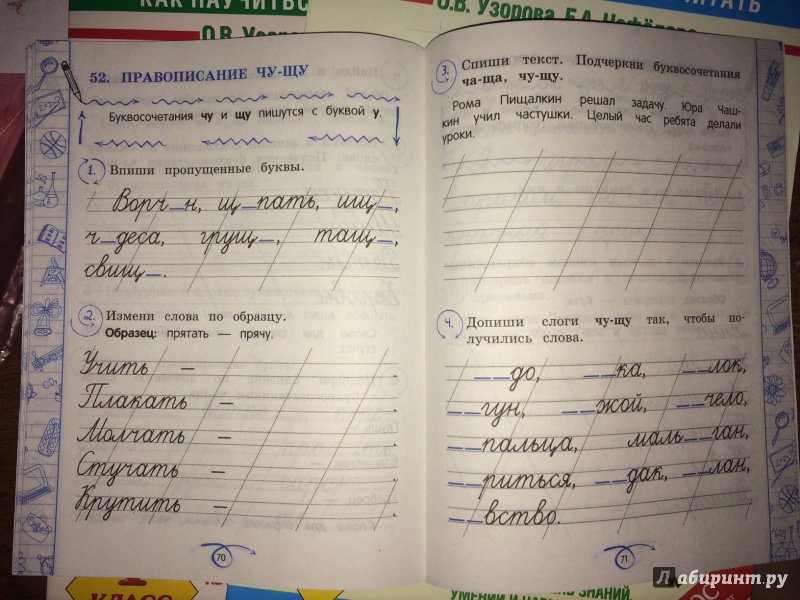 КАК НАУЧИТЬС
О.В. Узор
О.В. Узорова, Е.А. Нефёдова
ЧИТАТЬ
52. ПРАВОПИСАНИЕ ЧУ-ЩУ
Буквосочетания чу и щу пишутся с буквой у.
1. Впиши пропущенные буквы.
Ворч_н, щ_пать, ищ_,
ч_деса, грущ_, тащ_,
свищ_.
2. Измени слова по образцу.
Образец: прятать — прячу.
Учить — .
Плакать — .
Молчать — .
Стучать — .
Крутить — .
70
3. Спиши текст. Подчеркни буквосочетания
ча-ща, чу-щу.
Рома Пищалкин решал задачу. Юра Чаш-
кин учил частушки. Целый час ребята делали
уроки.
4. Допиши слоги чу-щу так, чтобы по-
лучились слова.
__до, __ка, __лок,
__гун, __жой, __чело,
__пальца, маль__ган,
__риться, __дак, __лан,
__вство.
71
КЛАСС
ЗНАНИЙ,
Лабиринт.ру